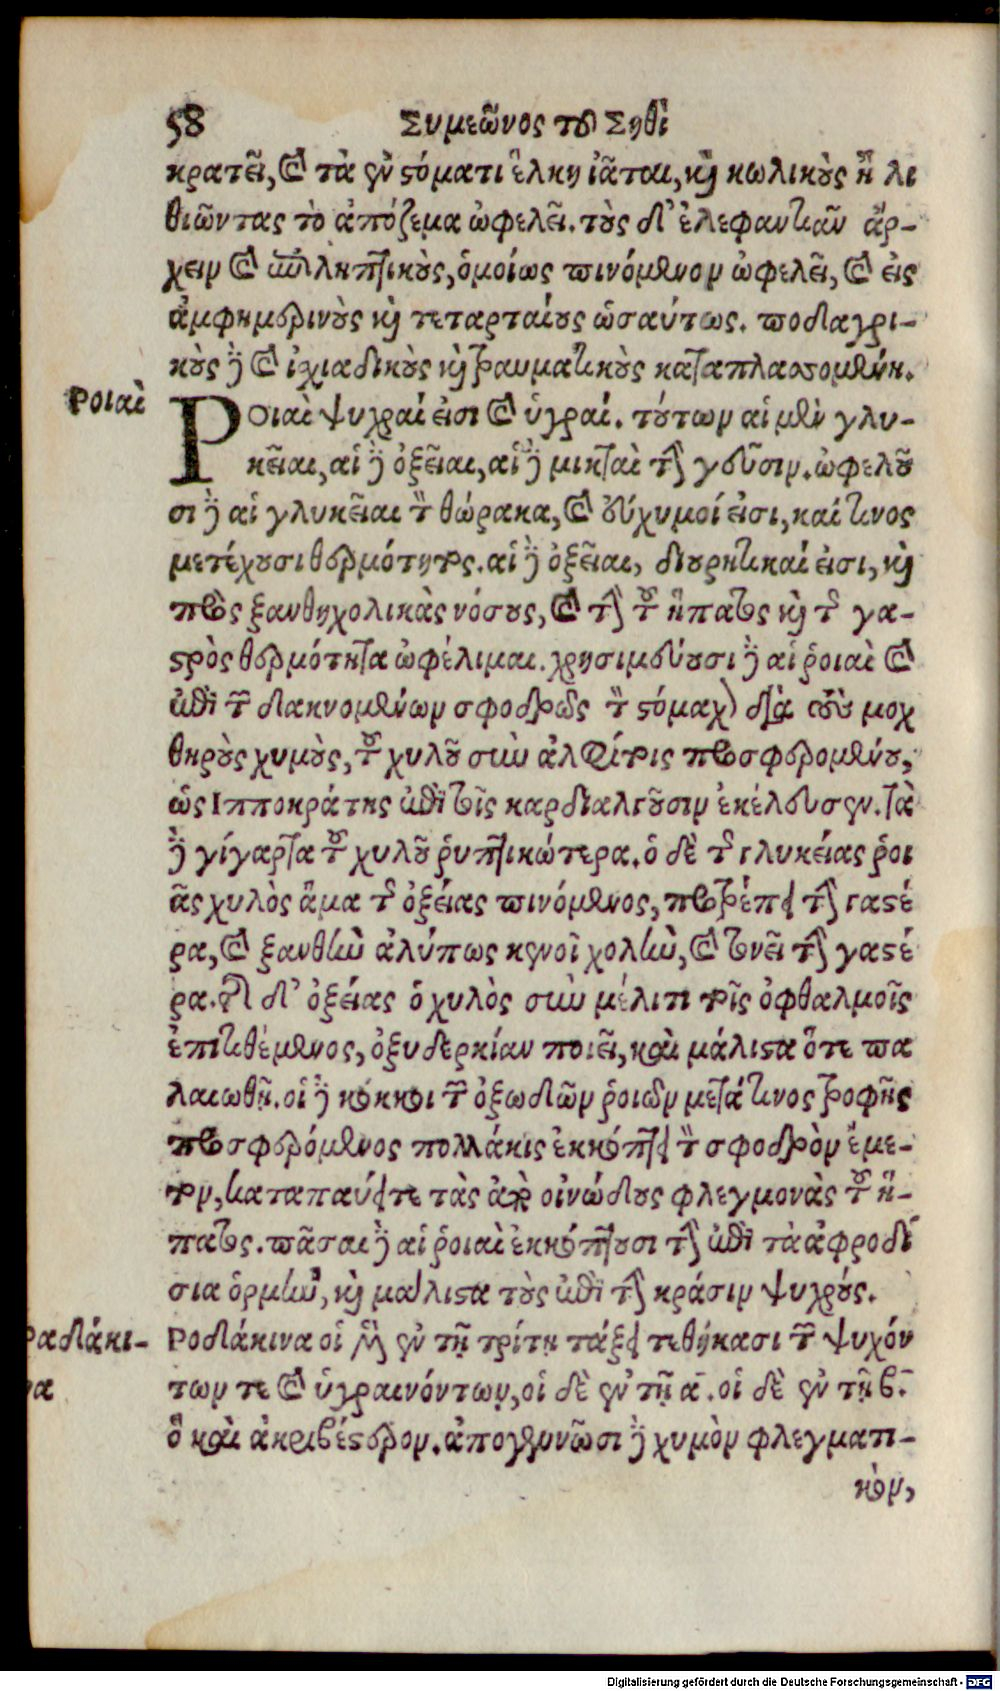 58 Συμεῶνος τοῦ Σηθὶ
κρατεῖ, καὶ τὰ ἐν στόματι ἕλκη ἰᾶται, καὶ κωλικοὺς ἢ λι
θιῶντας τὸ ἀπόζεμα ὠφελεῖ. τοὺς δ' ἐλεφαντιᾶν ἄρ-
χειν καὶ ἐπιληπτικοὺς, ὁμοίως πινόμενον ὠφελεῖ, καὶ εἰς
ἀμφημερινοὺς καὶ τεταρταίους ὡσαύτως. ποδαγρι-
κοὺς δὲ καὶ ἰχιαδικοὺς καὶ τραυματικοὺς καταπλασσομένη.
Ροιαὶ
Ροιαὶ ψυχραί εἰσι καὶ ὑγραί. τούτων αἱ μὲν γλυ-
κεῖαι, αἱ δὲ ὀξεῖαι, αἱ δὲ μικταὶ τὴν γεῦσιν. ὠφελοῦ
σι δὲ αἱ γλυκεῖαι τὸν θώρακα, καὶ εὔχυμοί εἰσι, καί τινος
μετέχουσι θερμότητος. αἱ δὲ ὀξεῖαι, διουρητικαί εἰσι, καὶ
πρὸς ξανθηχολικὰς νόσους, καὶ τὴν τοῦ ἥπατος καὶ τῆς γα-
στρὸς θερμότητα ὠφέλιμαι. χρησιμεύουσι δὲ αἱ ῥοιαὶ καὶ
ἐπὶ τῶν δακνομένων σφοδρῶς τὸν στόμαχον διὰ τοὺς μοχ
θηροὺς χυμοὺς, τοῦ χυλοῦ σὺν ἀλφίτοις προσφερομένου,
ὡς Ιπποκράτης ἐπὶ τοῖς καρδιαλγοῦσιν ἐκέλευσεν. τὰ
δὲ γίγαρτα τοῦ χυλοῦ ῥυπτικώτερα. ὁ δὲ τῆς γλυκείας ῥοι
ᾶς χυλὸς ἅμα τῆς ὀξείας πινόμενος, προτρέπει τὴν γαστέ
ρα, καὶ ξανθὴν ἀλύπως κενοῖ χολὴν, καὶ τονεῖ τὴν γαστέ
ρα. τῆς δ' ὀξείας ὁ χυλὸς σὺν μέλιτι τοῖς ὀφθαλμοῖς
ἐπιτιθέμενος, ὀξυδερκίαν ποιεῖ, καὶ μάλιστα ὅτε πα
λαιωθῇ. οἱ δὲ κόκκοι τῶν ὀξωδῶν ῥοιῶν μετά τινος τροφῆς
προσφερόμενος πολλάκις ἐκκόπτει τὸν σφοδρὸν ἔμε-
τον, καταπαύει τε τὰς ἀπὸ οἰνώδους φλεγμονὰς τοῦ ἥ-
πατος. πᾶσαι δὲ αἱ ῥοιαὶ ἐκκόπτουσι τὴν ἐπὶ τὰ ἀφροδί
σια ὁρμὴν, καὶ μάλιστα τοὺς ἐπὶ τὴν κράσιν ψυχρούς.
Ραδάκι-
να
Ροδάκινα οἱ μὲν ἐν τῇ τρίτῃ τάξει τεθήκασι τῶν ψυχόν
των τε καὶ ὑγραινόντων, οἱ δὲ ἐν τῇ α. οἱ δὲ ἐν τῇ β.
ὃ καὶ ἀκριβέστερον. ἀπογεννῶσι δὲ χυμὸν φλεγματι-
κὸν,
Digitalisierung gefördert durch die Deutsche Forschungsgemeinschaft - DFG